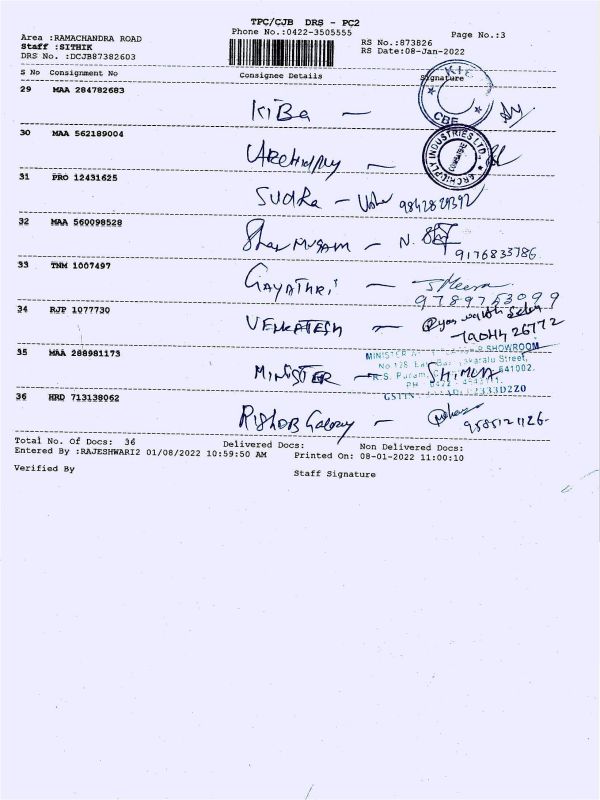 TPC/CJB DRS - PC2
Phone No.:0422-3505555
Page No.:3
Area :RAMACHANDRA ROAD
RS No.:873826
Staff :SITHIK
RS Date:08-Jan-2022
DRS No. :DCJB87382603
S No Consignment No Consignee Details Signature
29 MAA 284782683
KiBa —
CBE
30 MAA 562189004
Archidply —
ARCHIDPLY INDUSTRIES LTD
COIMBATORE
31 PRO 12431625
Sudha — Usha 9842829392
32 MAA 560098528
Shanmugam — N.
9176833786
33 TNM 1007497
GAYATHRI — J Meena
9789753099
34 RJP 1077730
VENKATESH —
35 MAA 288981173
MINISTER
SHOWROOM
No.128, Street,
R.S. Puram, 641002.
PH 0422 -
GSTIN
MINISTER —
36 HRD 713138062
Rishab Galaxy —
Total No. of Docs: 36 Delivered Docs: Non Delivered Docs:
Entered By :RAJESHWARI2 01/08/2022 10:59:50 AM Printed On: 08-01-2022 11:00:10
Verified By Staff Signature